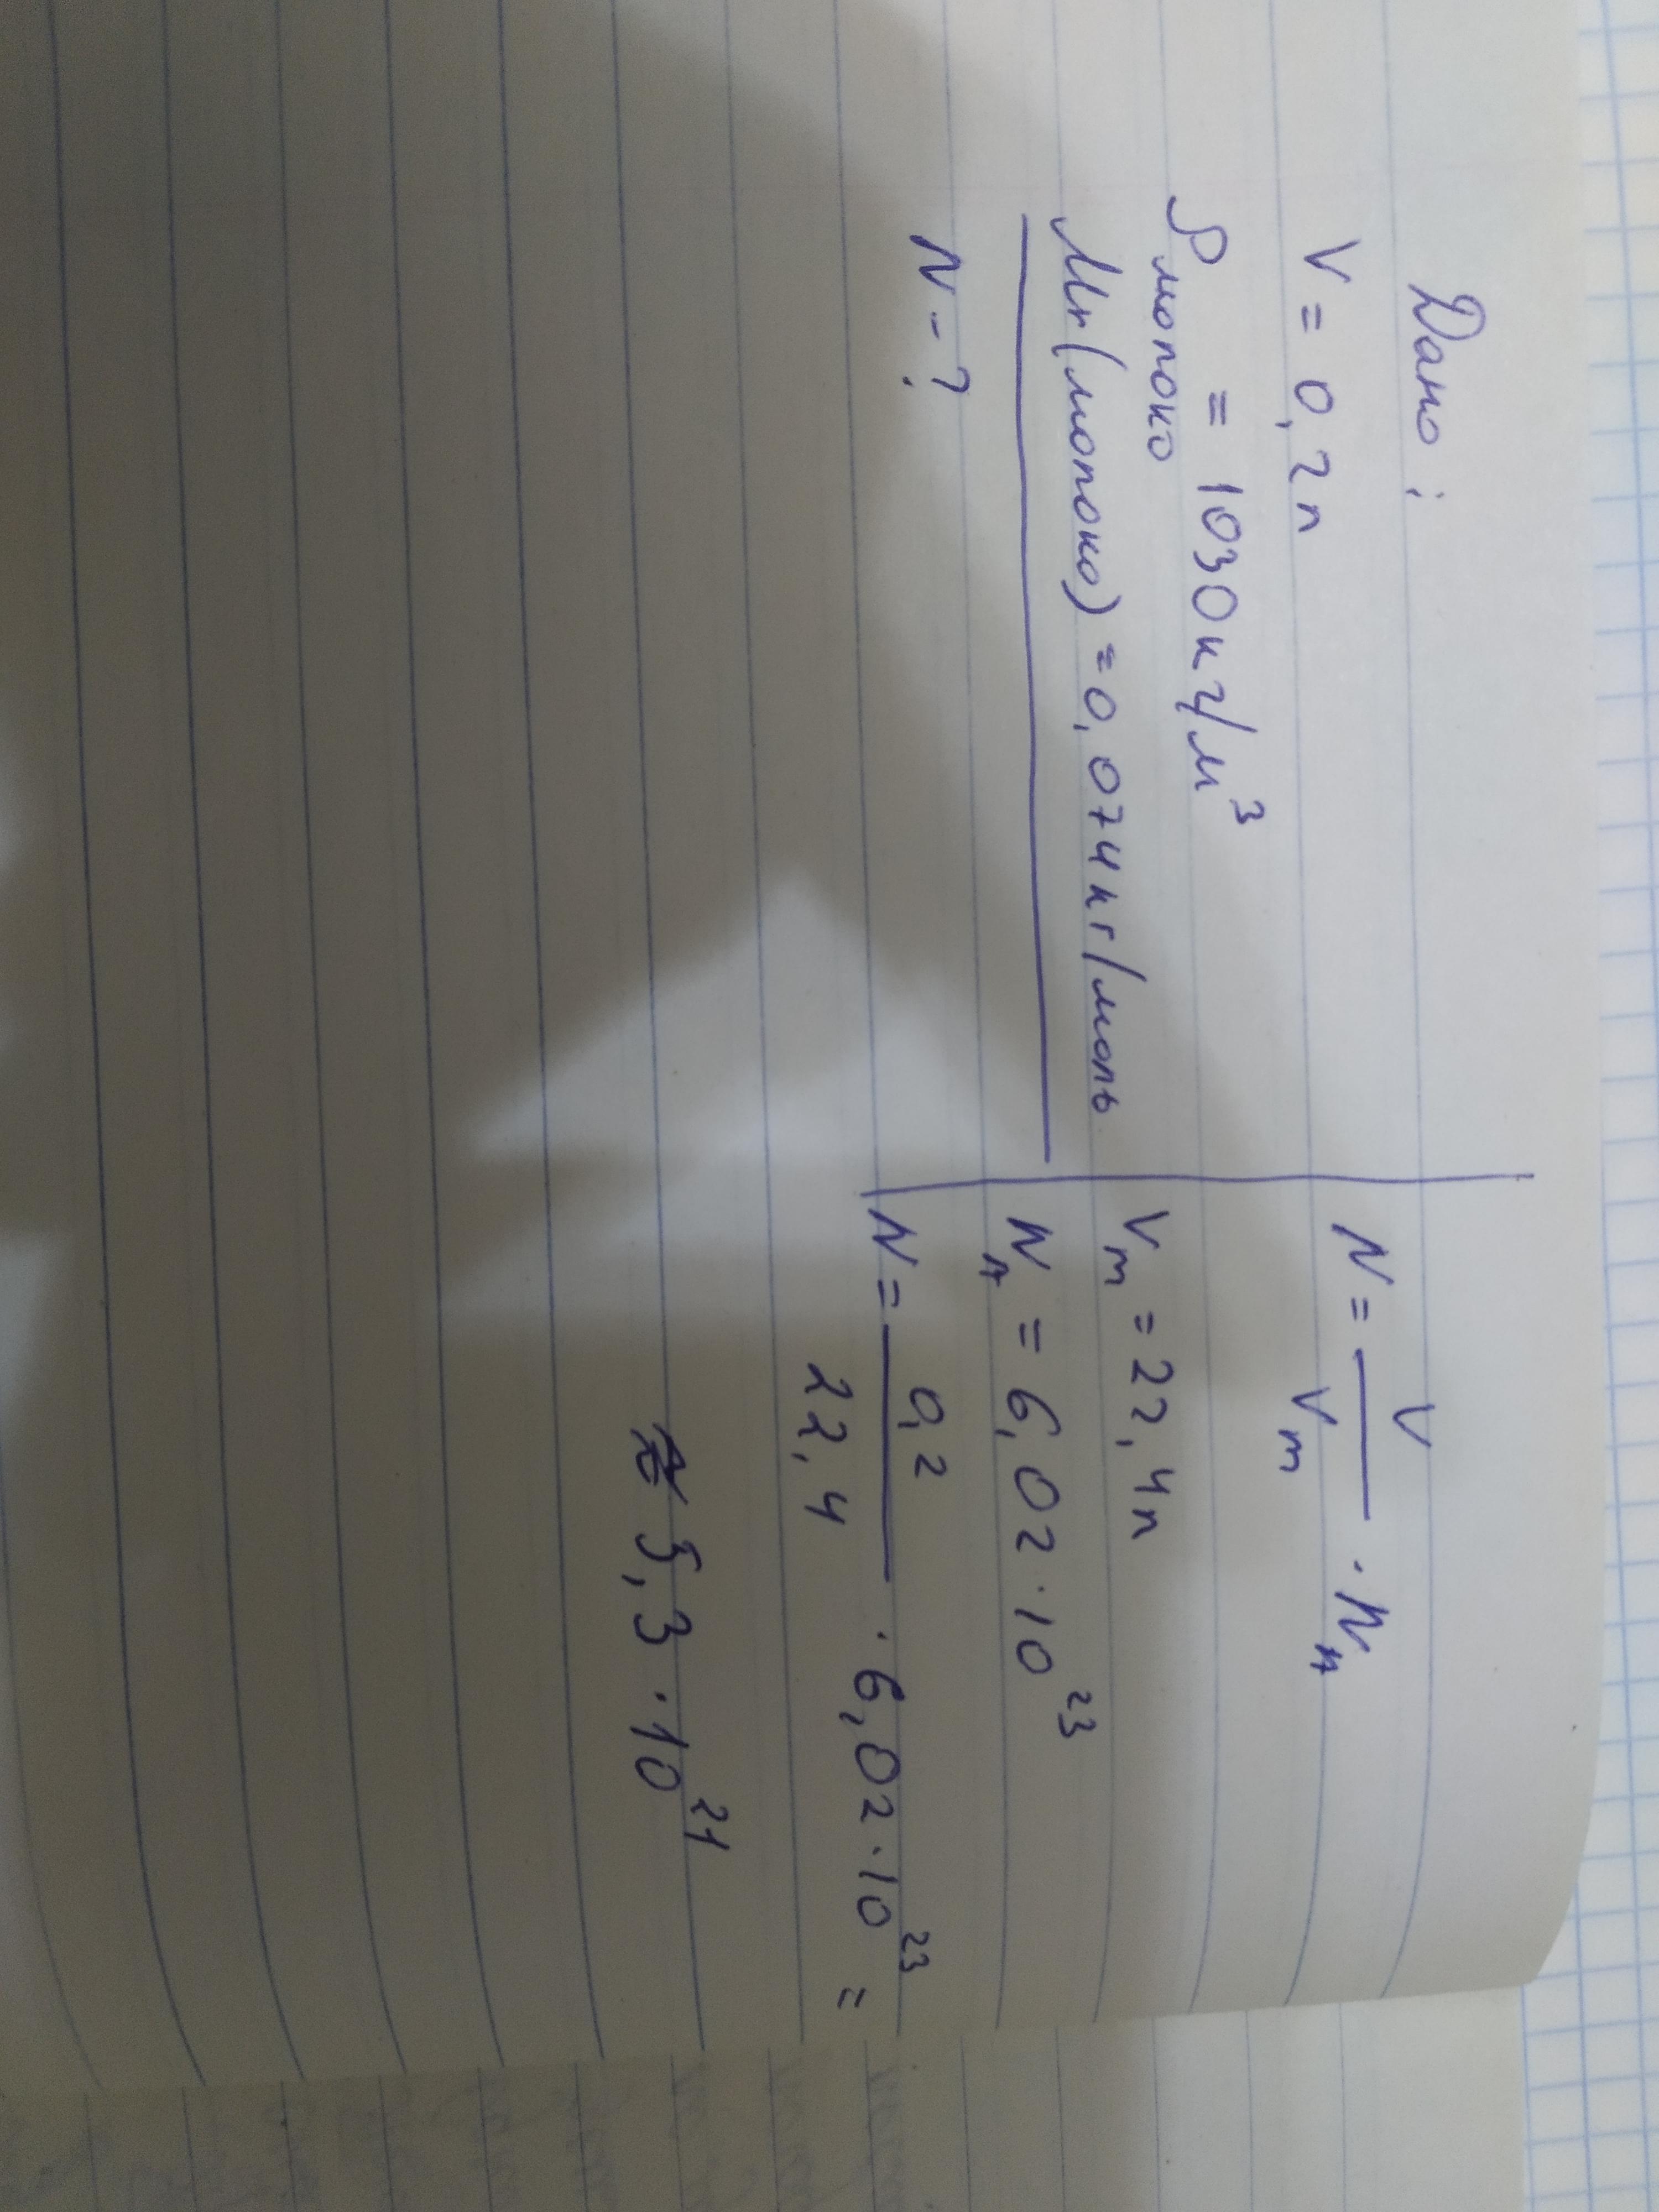 Дано:
V = 0,2л
ρ молоко = 1030кг/м³
Mr(молоко) = 0,074кг/моль
N - ?
N = V / Vm · NA
Vm = 22,4л
NA = 6,02 · 10²³
N = 0,2 / 22,4 · 6,02 · 10²³ =
5,3 · 10²¹